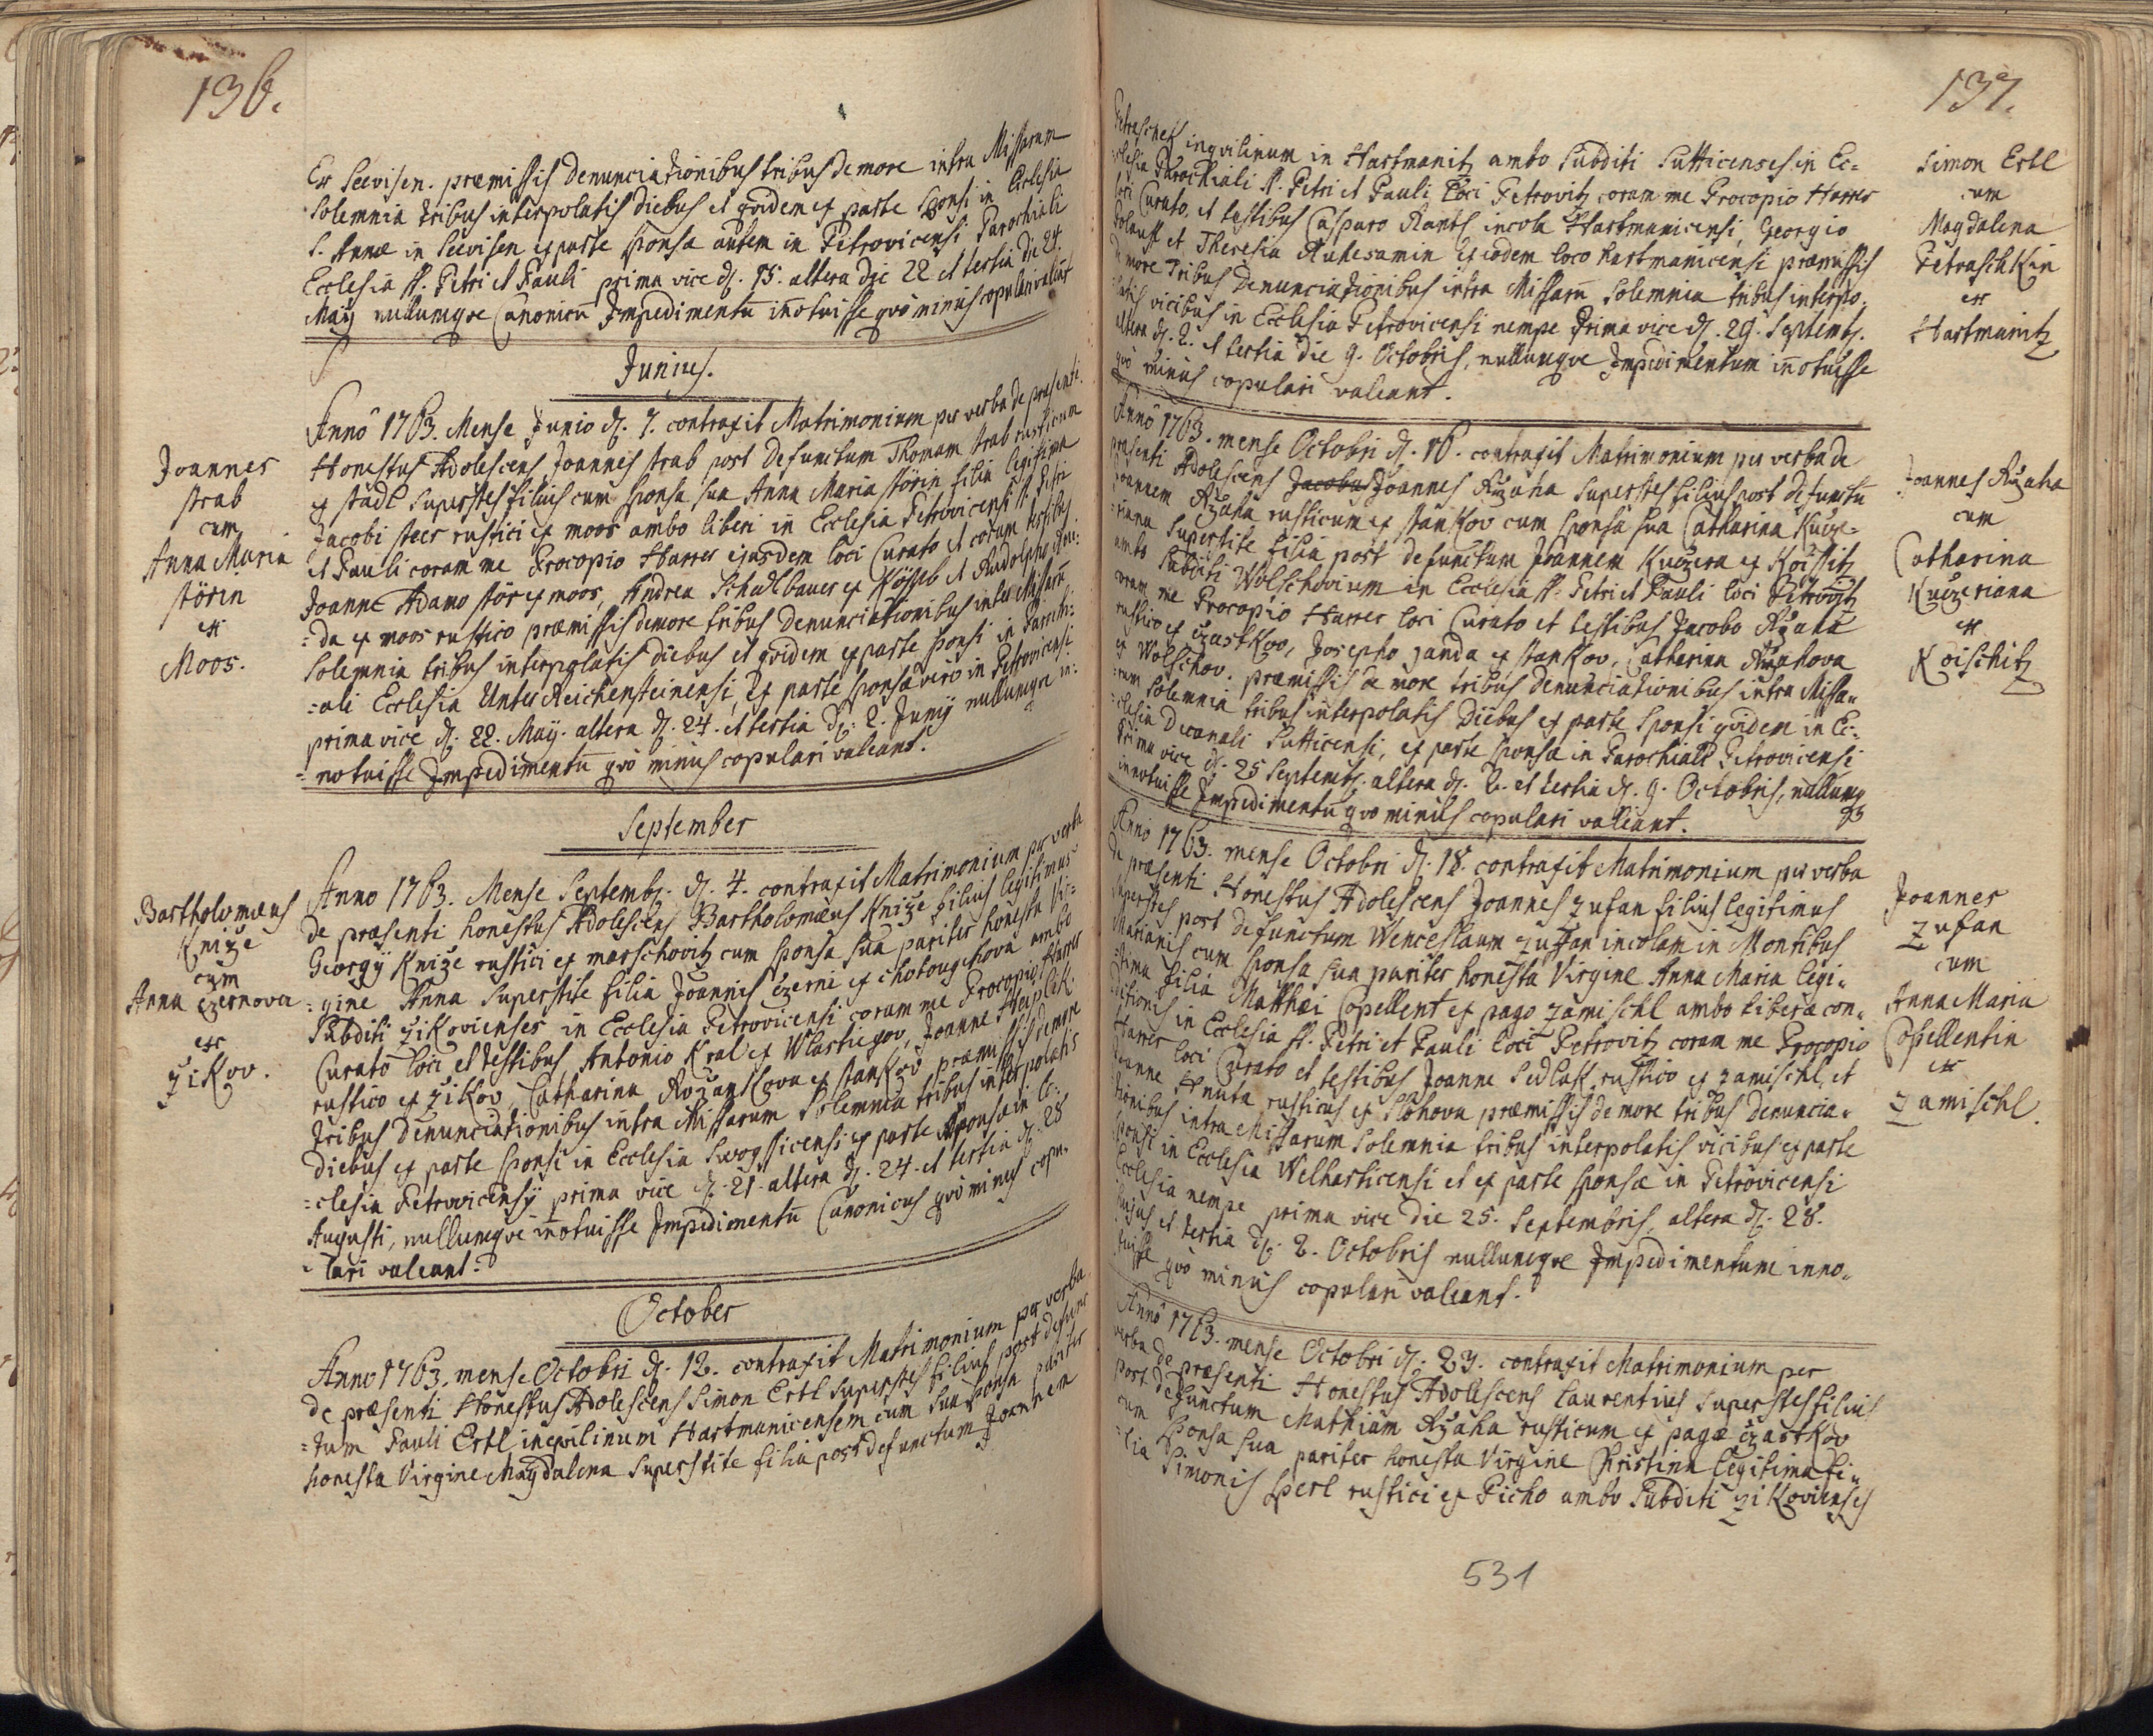 136.
Ex Seevisen. præmissis denunciationibus tribus de more intra Missarum
Solemnia tribus interpolatis diebus et quidem ex parte Sponsi in Ecclesia
S. Annæ in Seevisen ex parte sponsæ autem in Petrovicensi Parochiali
Ecclesia ss. Petri et Pauli prima vice d. 15. altera die 22 et tertia die 24.
Maÿ nullumqve Canonicū Impedimentū iñotuisse qvo minus copulari valeant
Junius.
Joannes
strab
cum
Anna Maria
störin
ex
Moos.
Annô 1763. Mense Junio d. 7. contraxit Matrimonium per verba de præsenti
Honestus Adolescens Joannes strab post defunctum Thomam strab rusticum
ex städl superstes filius cum sponsa sua Anna Maria störin filia legitima
Jacobi steer rustici ex moos ambo liberi in Ecclesia Petrovicensi ss. Petri
et Pauli coram me Procopio Harrer ejusdem loci Curato et coram testibus
Joanne Adamo stör ex moos, Andrea Schadlbauer ex Kösseb et Rudolpho
=da ex moos rustico præmissis de more tribus denunciationibus inter Missarū
Solemnia tribus interpolatis diebus et qvidem ex parte sponsi in Parochi:
=ali Ecclesia Unter Reichensteinensi, Ex parte sponsæ verò in Petrovicensi
prima vice d. 22. Maÿ. altera d. 24. et tertia d. 2. Junÿ nullumqve in:
=notuisse Impedimentū qvò minus copulari valeant.
September
Bartholomæus
Kniže
cum
Anna czernova
ex
žikov.
Anno 1763. Mense Septemb. d. 4. contraxit Matrimonium per verba
de præsenti honestus Adolescens Bartholomæus Kniže filius legitimus
Georgÿ Kniže rustici ex marschovitz cum sponsa sua pariter honesta Vir=
=gine Anna superstite filia Joannis czerni ex chotaugchova ambo
Subditi žikovienses in Ecclesia Petrovicensi coram me Procopio Harrer
Curato loci et testibus Antonio Kral ex Wlastiegov, Joanne
rustico ex žikov, Catharina Rožankova ex stankov præmissis de more
tribus denunciationibus intra Missarum Solemnia tribus interpolatis
diebus ex parte sponsi in Ecclesia Swogssicensi ex parte sponsæ in Ec:
=clesia Petrovicensÿ prima vice d. 21. altera d. 24. et tertia d. 28
Augusti, nullumqve iñotuisse Impedimentū Canonicus qvò minus copu=
=lari valeant.
October
Anno 1763. mense Octobri d. 12. contraxit Matrimonium per verba
de præsenti Honestus Adolescens Simon Ertl superstes filius post defunc
=tum Pauli Ertl inqvilinum Hartmanicensem cum sua sponsa pariter
honesta Virgine Magdalena superstite filia post defunctum Joannem
137.
Petraschek inqvilinum in Hartmanitz ambo Subditi Sutticenses in Ec=
=clesia Parochiali ss. Petri et Pauli loci Petrovitz coram me Procopio Harrer
loci Curato, et testibus Casparo Rants incola Hartmanicensi, Georgio
et Theresia Ruhesamin ex eodem loco hartmanicensi præmissis
de more tribus denunciationibus intra Missarū Solemnia tribus interpo=
=latis vicibus in Ecclesia Petrovicensi nempe Prima vice d. 29. Septemb.
altera d. 2. et tertia die 9. Octobris, nullumqve Impedimentum iñotuisse
qvò minus copulari valeant.
Simon Ertl
cum
Magdalena
Petraschkin
ex
Hartmanitz
Annô 1763. mense Octobri d. 16. contraxit Matrimonium per verba de
præsenti Adolescens Jacobus Joannes Ržaha superstes filius post defunctū
Joannem Ržaha rusticum ex stankov cum sponsa sua Catharina Kucze=
=riana superstite filia post defunctum Joannem Kuczera ex Koissitz
ambo Subditi Wolschovium in Ecclesia ss. Petri et Pauli loci Petrovitz
coram me Procopio Harrer loci Curato et testibus Jacobo Ržaha
rustico ex czastkov, Josepho Janda ex stankov, Catharina Ržahova
ex Wolschov. præmissis de more tribus denunciationibus intra Missa=
=rum Solemnia tribus interpolatis diebus ex parte sponsi qvidem in Ec:
=clesia Decanali Sutticensi, ex parte sponsæ in Parochiali Petrovicensi
prima vice d. 25 Septemb. altera d. 2. et tertia d. 9. Octobris, nullumq
innotuisse Impedimentū qvo minus copulari valeant.
Joannes Ržaha
cum
Catharina
Kuczeriana
ex
Koischitz
Anno 1763. mense Octobri d. 18. contraxit Matrimonium per verba
de præsenti Honestus Adolescens Joannes zufan filius legitimus
superstes post defunctum Wenceslaum zuffan incolam in Montibus
Marianis cum sponsa sua pariter honesta Virgine Anna Maria legi=
=tima filia Matthæi Copellent ex pago zamischl ambo liberæ con=
ditionis in Ecclesia ss. Petri et Pauli loci Petrovitz coram me Procopio
Harrer loci Curato et testibus Joanne Sedlak rustico ex zamischl, et
Joanne Hnuta rusticus ex Slohova præmissis de more tribus denuncia=
tionibus intra Missarum Solemnia tribus interpolatis vicibus ex parte
sponsi in Ecclesia Welharticensi et ex parte sponsæ in Petrovicensi
Ecclesia nempe prima vice die 25. Septembris, altera d. 28.
hujus et tertia d. 2. Octobris nullumqve Impedimentum inno=
tuisse qvò minus copulari valeant.
Joannes
zufan
cum
Anna Maria
Copellentin
ex
zamischl.
Annô 1763. mense Octobri d. 23. contraxit Matrimonium per
verba de præsenti Honestus Adolescens Laurentius superstes filius
post defunctum Mathiam Ržaha rusticum ex pago czastkov
cum sponsa sua pariter honesta Virgine Christina legitima fi=
=lia Simonis Sperl rustici ex Picho ambo Subditi zikovienses
531